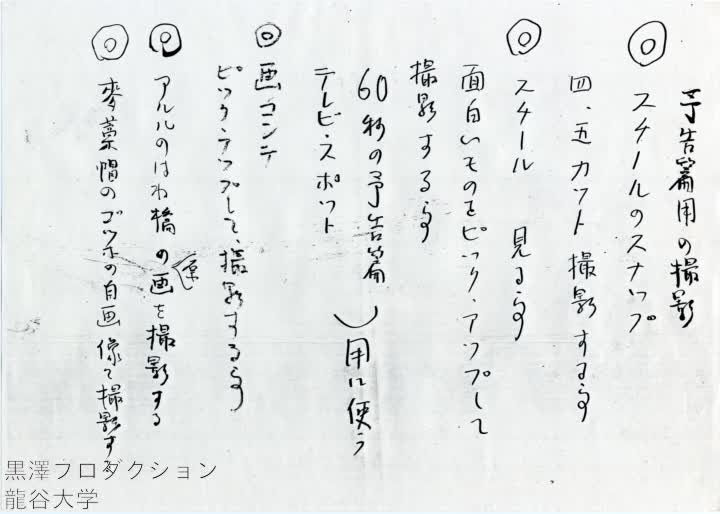 予告篇用の撮影
◎ スチールのスナップ
四、五カット撮影する事
◎ スチール 見る事
面白いものをピック・アップして
撮影する事
60秒の予告篇
テレビ・スポット
用に使う
◎ 画コンテ
ピック・アップして、撮影する事
◎ アルルのはね橋の原画を撮影する
◎ 麥藁帽のゴッホの自画像で撮影する
黒澤プロダクション
龍谷大学